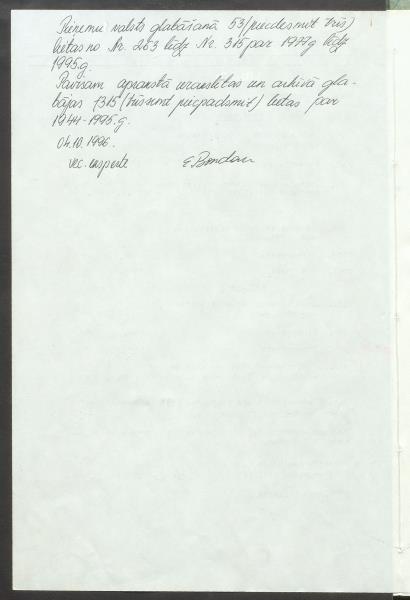 Pieņemu valsts glabāšanā 53 (piecdesmit trīs)
lietas no Nr. 263 līdz Nr. 315 par 1977g līdz
1995.g.
Pavisam aprakstā ierakstītas un arhīvā gla-
bājas 315 (trīssimt piecpadsmit) lietas par
1944-1995.g.
04.10.1996.
vec. eksperte